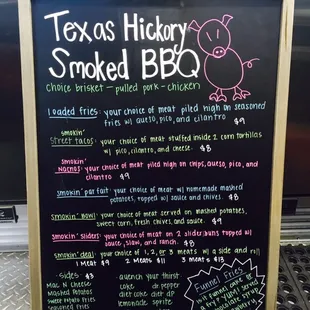 Texas Hickory
Smoked BBQ
choice brisket - pulled pork - chicken
loaded fries: your choice of meat piled high on seasoned
fries w/ queso, pico, and cilantro $9
smokin'
street tacos: your choice of meat stuffed inside 2 corn tortillas
w/ pico, cilantro, and cheese. $8
smokin'
nachos: your choice of meat piled on chips, queso, pico, and
cilantro $9
smokin' parfait: your choice of meat w/ homemade mashed
potatoes, topped w/ sauce and chives $8
smokin' bowl: your choice meat served on mashed potatoes,
sweet corn, fresh chives, and sauce. $9
smokin' sliders: your choice of meat on 2 slider buns topped w/
sauce, slaw, and ranch. $8
smokin' deal: your choice of 1, 2, or 3 meats w/ a side and roll
1 meat $9 2 meats $11 3 meats $13
sides: $3
Mac N Cheese
Mashed Potatoes
Sweet Potato Fries
Seasoned Fries
quench your thirst
coke dr pepper
diet coke diet dp
lemonade sprite
Funnel Fries